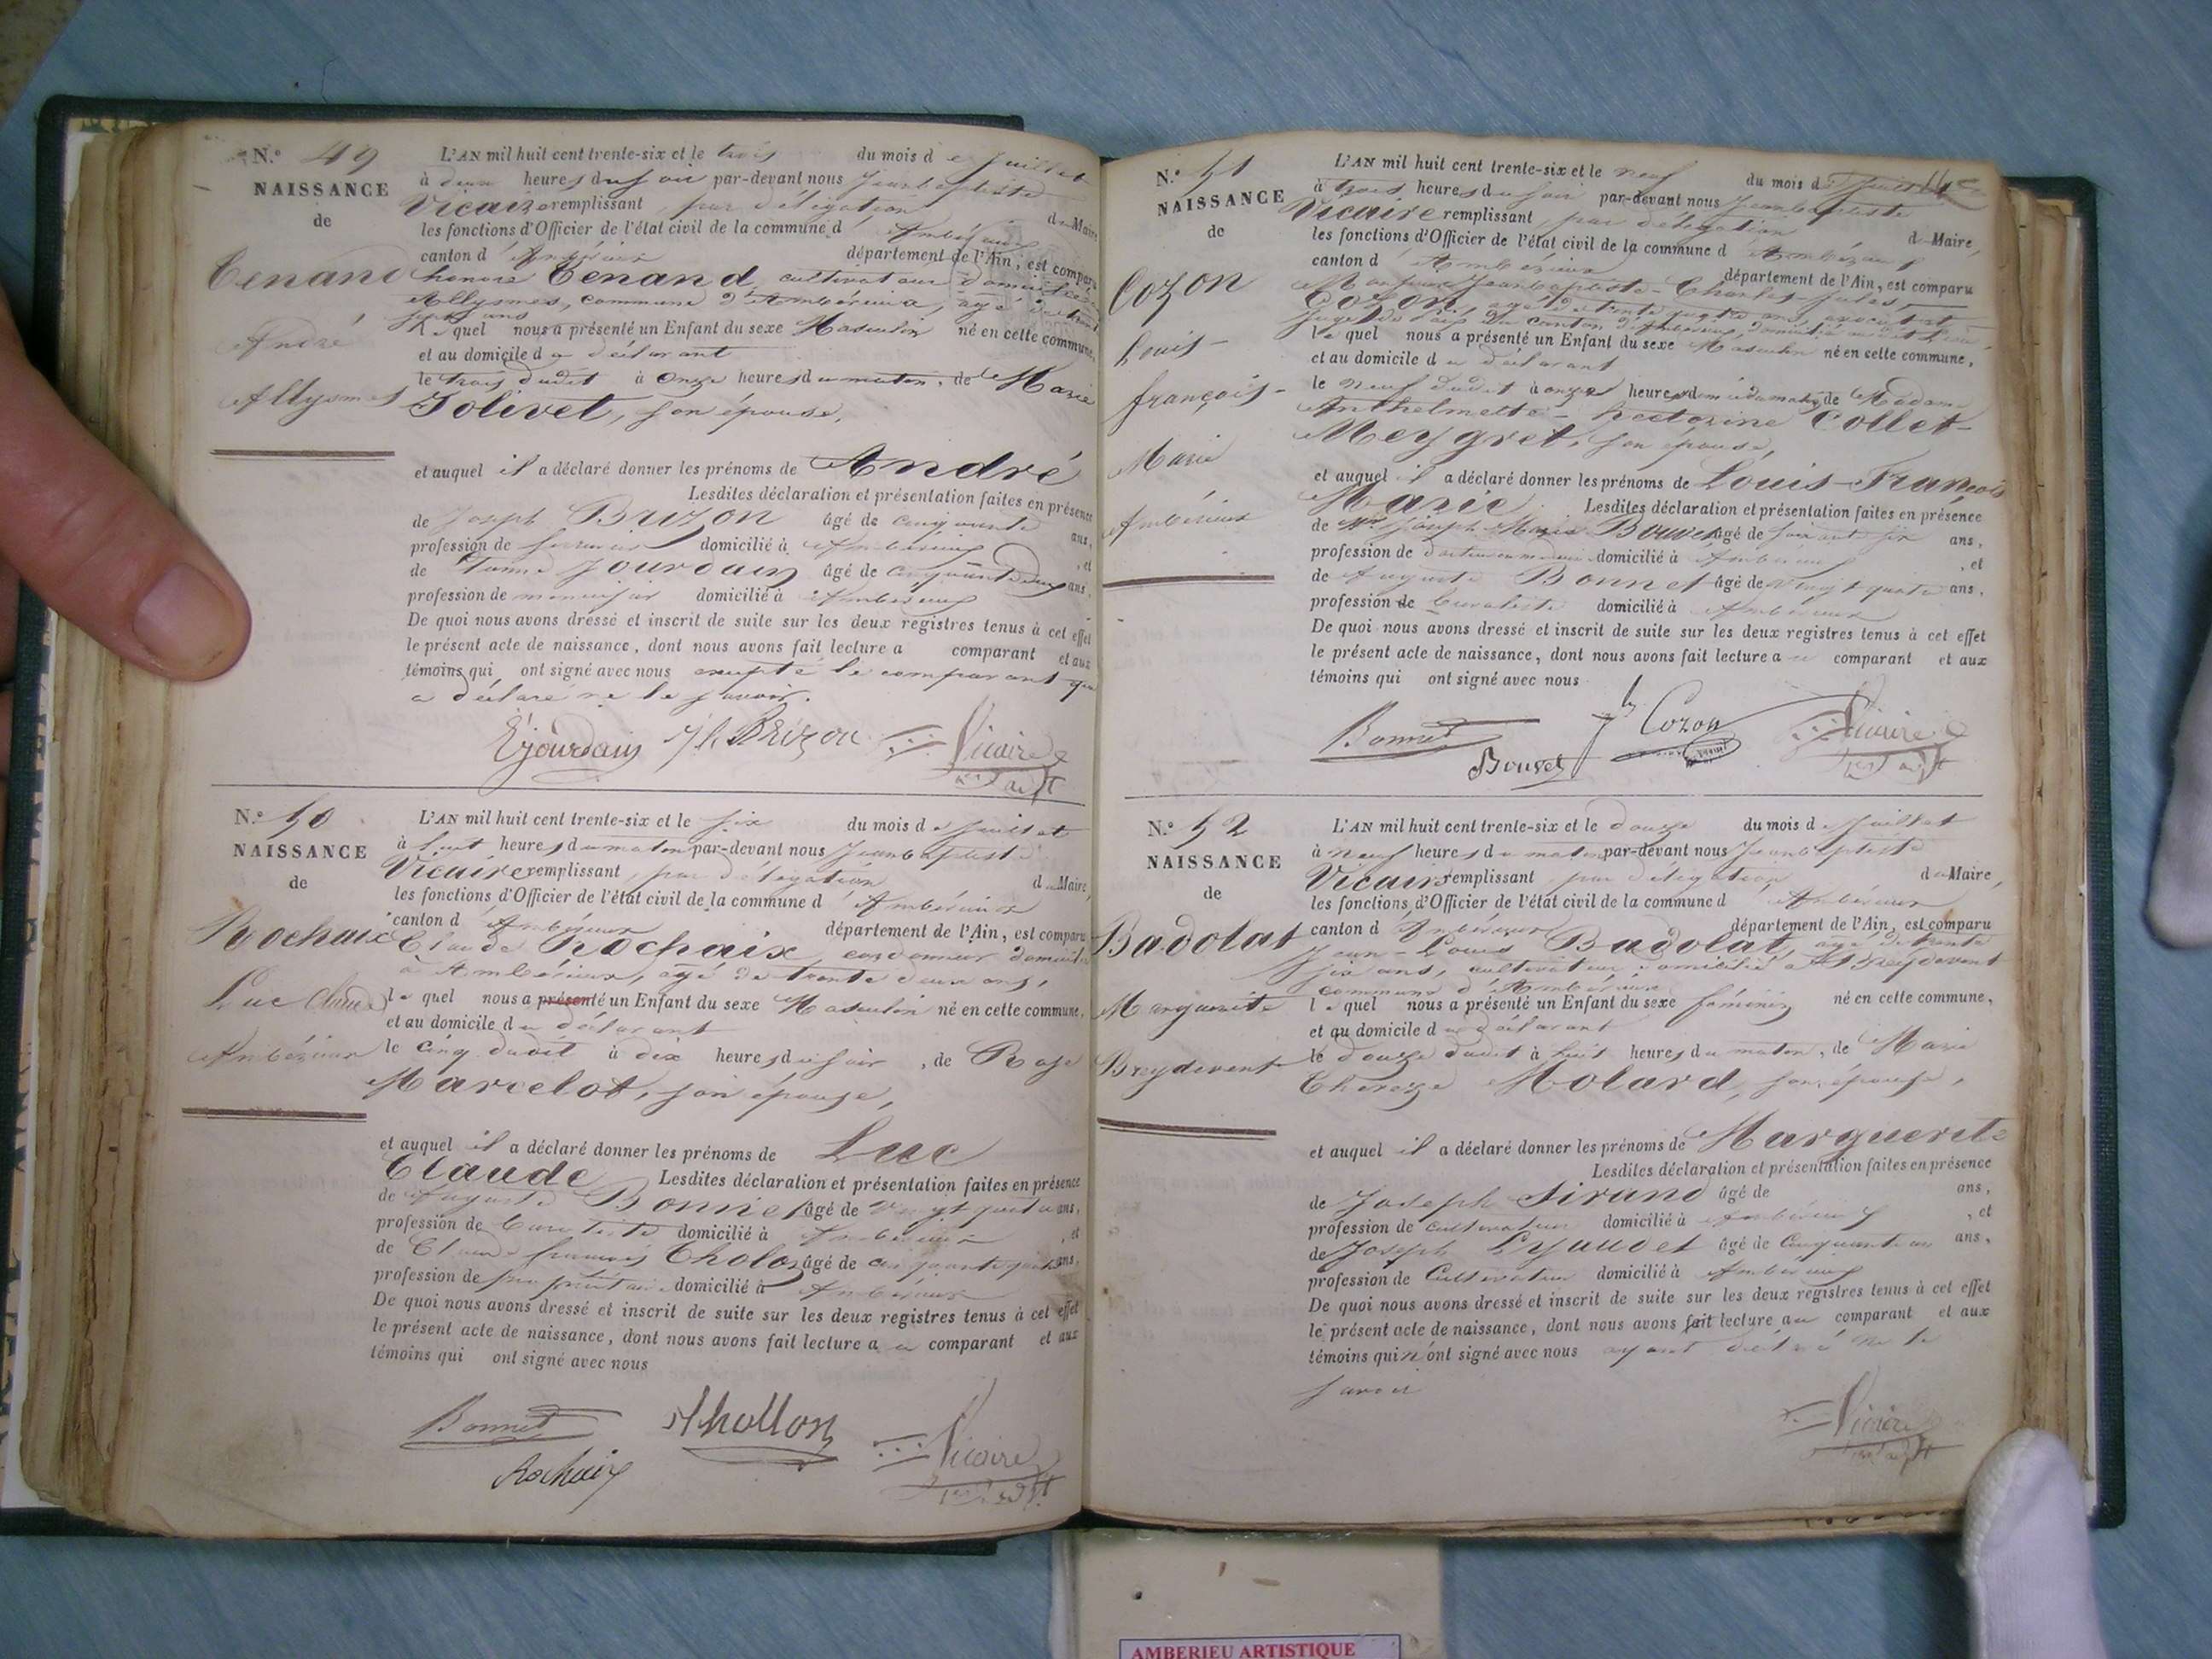 N.º 49
NAISSANCE
de
Tenand
André
Allysmes
L'AN mil huit cent trente-six et le trois du mois de Juillet
à deux heures du soir par-devant nous Jean baptiste
Vicaire remplissant par délégation du Maire
les fonctions d'Officier de l'état civil de la commune d'Ambérieux
canton d'Ambérieux département de l'Ain, est comparu
honoré Tenand, cultivateur domicilié à
Allysmes, commune d'Ambérieux, agé de trente
sept ans
lequel nous a présenté un Enfant du sexe Masculin né en cette commune,
et au domicile du déclarant
le trois dudit à onze heures du matin, de Marie
Jolivet, son épouse,
et auquel il a déclaré donner les prénoms de André
Lesdites déclaration et présentation faites en présence
de Joseph Brizon âgé de cinquante ans,
profession de domicilié à Ambérieux, et
de Jourdain âgé de cinquante deux ans,
profession de menuisier domicilié à Ambérieux
De quoi nous avons dressé et inscrit de suite sur les deux registres tenus à cet effet
le présent acte de naissance, dont nous avons fait lecture a comparant et aux
témoins qui ont signé avec nous excepté le comparant qui
a déclaré ne le savoir.
Ejourdain Brizon Vicaire
N.º 50
NAISSANCE
de
Rochaix
Luc Claude
Ambérieux
L'AN mil huit cent trente-six et le six du mois de Juillet
à huit heures du matin par-devant nous Jean baptiste
Vicaire remplissant par délégation du Maire,
les fonctions d'Officier de l'état civil de la commune d'Ambérieux
canton d'Ambérieux département de l'Ain, est comparu
Claude Rochaix, cordonnier domicilié
à Ambérieux, agé de trente deux ans,
lequel nous a présenté un Enfant du sexe Masculin né en cette commune,
et au domicile du déclarant
le cinq dudit à dix heures du soir, de Rose
Marcelot, son épouse,
et auquel il a déclaré donner les prénoms de Luc
Claude Lesdites déclaration et présentation faites en présence
de Auguste Bonnet âgé de vingt quatre ans,
profession de buraliste domicilié à Ambérieux, et
de Claude françois Tholon âgé de cinquante quatre ans,
profession de propriétaire domicilié à Ambérieux
De quoi nous avons dressé et inscrit de suite sur les deux registres tenus à cet effet
le présent acte de naissance, dont nous avons fait lecture au comparant et aux
témoins qui ont signé avec nous
Bonnet Thollon Vicaire
Rochaix
N.º 51
NAISSANCE
de
Cozon
Louis-
françois-
Marie
Ambérieux
L'AN mil huit cent trente-six et le neuf du mois de Juillet
à trois heures du soir par-devant nous Jean baptiste
Vicaire remplissant par délégation du Maire,
les fonctions d'Officier de l'état civil de la commune d'Ambérieux
canton d'Ambérieux département de l'Ain, est comparu
Monsieur Jean baptiste-Charles-Jules
Cozon, agé de trente quatre ans, avocat et
juge de paix du canton d'Ambérieux, domicilié audit lieu
lequel nous a présenté un Enfant du sexe Masculin né en cette commune,
et au domicile du déclarant
le neuf dudit à onze heures du matin, de Madame
Anthelmette-hectorine Collet-
Meygret, son épouse,
et auquel il a déclaré donner les prénoms de Louis-François
Marie. Lesdites déclaration et présentation faites en présence
de Mr Joseph Marie Bouvet âgé de soixante six ans,
profession de docteur en médecine domicilié à Ambérieux, et
de Auguste Bonnet âgé de vingt quatre ans,
profession de buraliste domicilié à Ambérieux
De quoi nous avons dressé et inscrit de suite sur les deux registres tenus à cet effet
le présent acte de naissance, dont nous avons fait lecture au comparant et aux
témoins qui ont signé avec nous
Bonnet Cozon Vicaire
Bouvet
N.º 52
NAISSANCE
de
Badolat
Marguerite
Breydevent
L'AN mil huit cent trente-six et le douze du mois de Juillet
à neuf heures du matin par-devant nous Jean baptiste
Vicaire remplissant par délégation du Maire,
les fonctions d'Officier de l'état civil de la commune d'Ambérieux
canton d'Ambérieux département de l'Ain, est comparu
Jean-Louis Badolat, agé de trente
six ans, cultivateur domicilié à Breydevent
commune d'Ambérieux
lequel nous a présenté un Enfant du sexe féminin né en cette commune,
et au domicile du déclarant
le douze dudit à huit heures du matin, de Marie
Thereze Molard, son épouse,
et auquel il a déclaré donner les prénoms de Marguerite
Lesdites déclaration et présentation faites en présence
de Joseph Sirand âgé de ans,
profession de cultivateur domicilié à Ambérieux, et
de Joseph Lyaudet âgé de cinquante un ans,
profession de Cultivateur domicilié à Ambérieux
De quoi nous avons dressé et inscrit de suite sur les deux registres tenus à cet effet
le présent acte de naissance, dont nous avons fait lecture au comparant et aux
témoins qui n'ont signé avec nous ayant déclaré ne le
savoir
Vicaire
AMBERIEU ARTISTIQUE